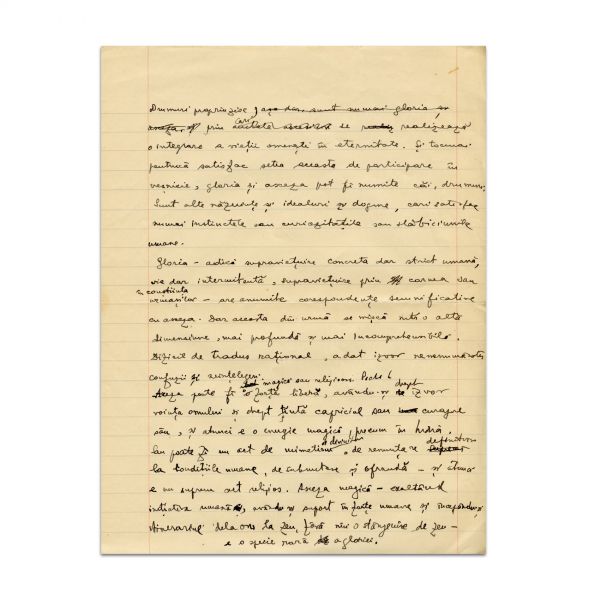 Drumuri propriu zise, așa dar, sunt numai gloria și
asceza, prin cari se realizează
o integrare a vieții omenești în eternitate. Și tocmai
pentrucă satisfac setea aceasta de participare în
veșnicie, gloria și asceza pot fi numite căi, drumuri.
Sunt alte năzuințe și idealuri și dogme, cari satisfac
numai instinctele sau curiozitățile sau slăbiciunile
umane.
Gloria – adică supraviețuire concretă dar strict umană,
vie dar intermitentă, supraviețuire prin carnea sau
în conștiința
urmașilor – are anumite corespondențe semnificative
cu asceza. Dar aceasta din urmă se mișcă într'o altă
dimensiune, mai profundă și mai incomprehensibilă.
Dificil de tradus rațional, a dat izvor nenumăratelor
confuzii și neînțelegeri.
magică sau religioasă. Poate fi
Asceza poate fi o forță liberă, avându-și drept izvor
voința omului și drept țintă capriciul sau curajul
său, și atunci e o energie magică, precum în
sau poate fi un act de a divinului, de renunțare definitivă
la condițiile umane, de și ofrandă – și atunci
e un suprem act religios. Asceza magică – exaltând
inițiativa umană, având și suport în forțe umane și începându-și
itinerariul dela om la zeu, fără nici o de zeu –
e o specie rară a gloriei.